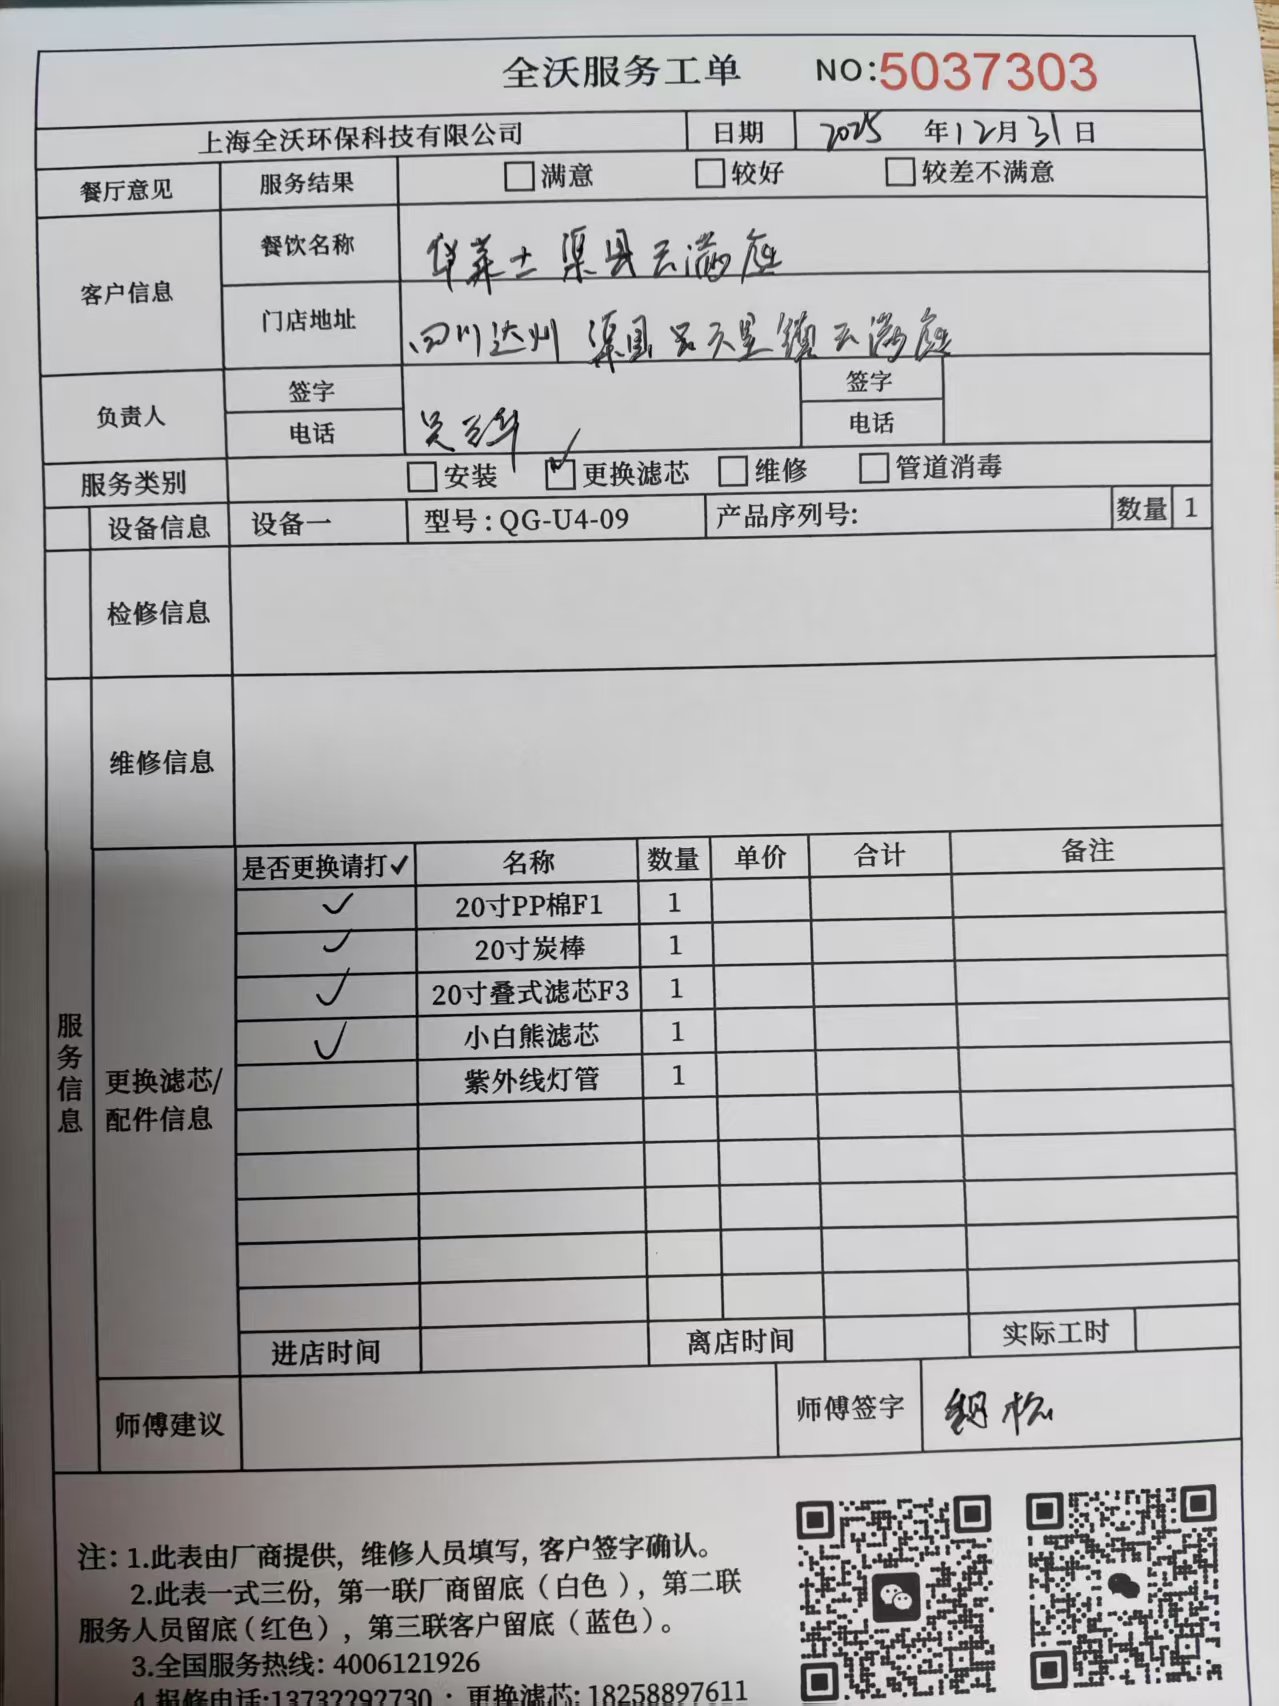 全沃服务工单 NO:5037303
上海全沃环保科技有限公司 日期 2025 年12月31日
餐厅意见 服务结果 □满意 □较好 □较差不满意
客户信息 餐饮名称 华莱士渠县云满庭
门店地址 四川达州 渠县 天星镇云满庭
负责人 签字 签字
电话 电话
服务类别 □安装 ☑更换滤芯 □维修 □管道消毒
设备信息 设备一 型号:QG-U4-09 产品序列号: 数量 1
检修信息
维修信息
服务信息
更换滤芯/
配件信息
是否更换请打✓ 名称 数量 单价 合计 备注
✓ 20寸PP棉F1 1
✓ 20寸炭棒 1
✓ 20寸叠式滤芯F3 1
✓ 小白熊滤芯 1
紫外线灯管 1
进店时间 离店时间 实际工时
师傅建议 师傅签字
注: 1.此表由厂商提供, 维修人员填写, 客户签字确认。
2.此表一式三份, 第一联厂商留底(白色), 第二联
服务人员留底(红色), 第三联客户留底(蓝色)。
3.全国服务热线: 4006121926
4.报修电话:13732292730 ; 更换滤芯: 18258897611